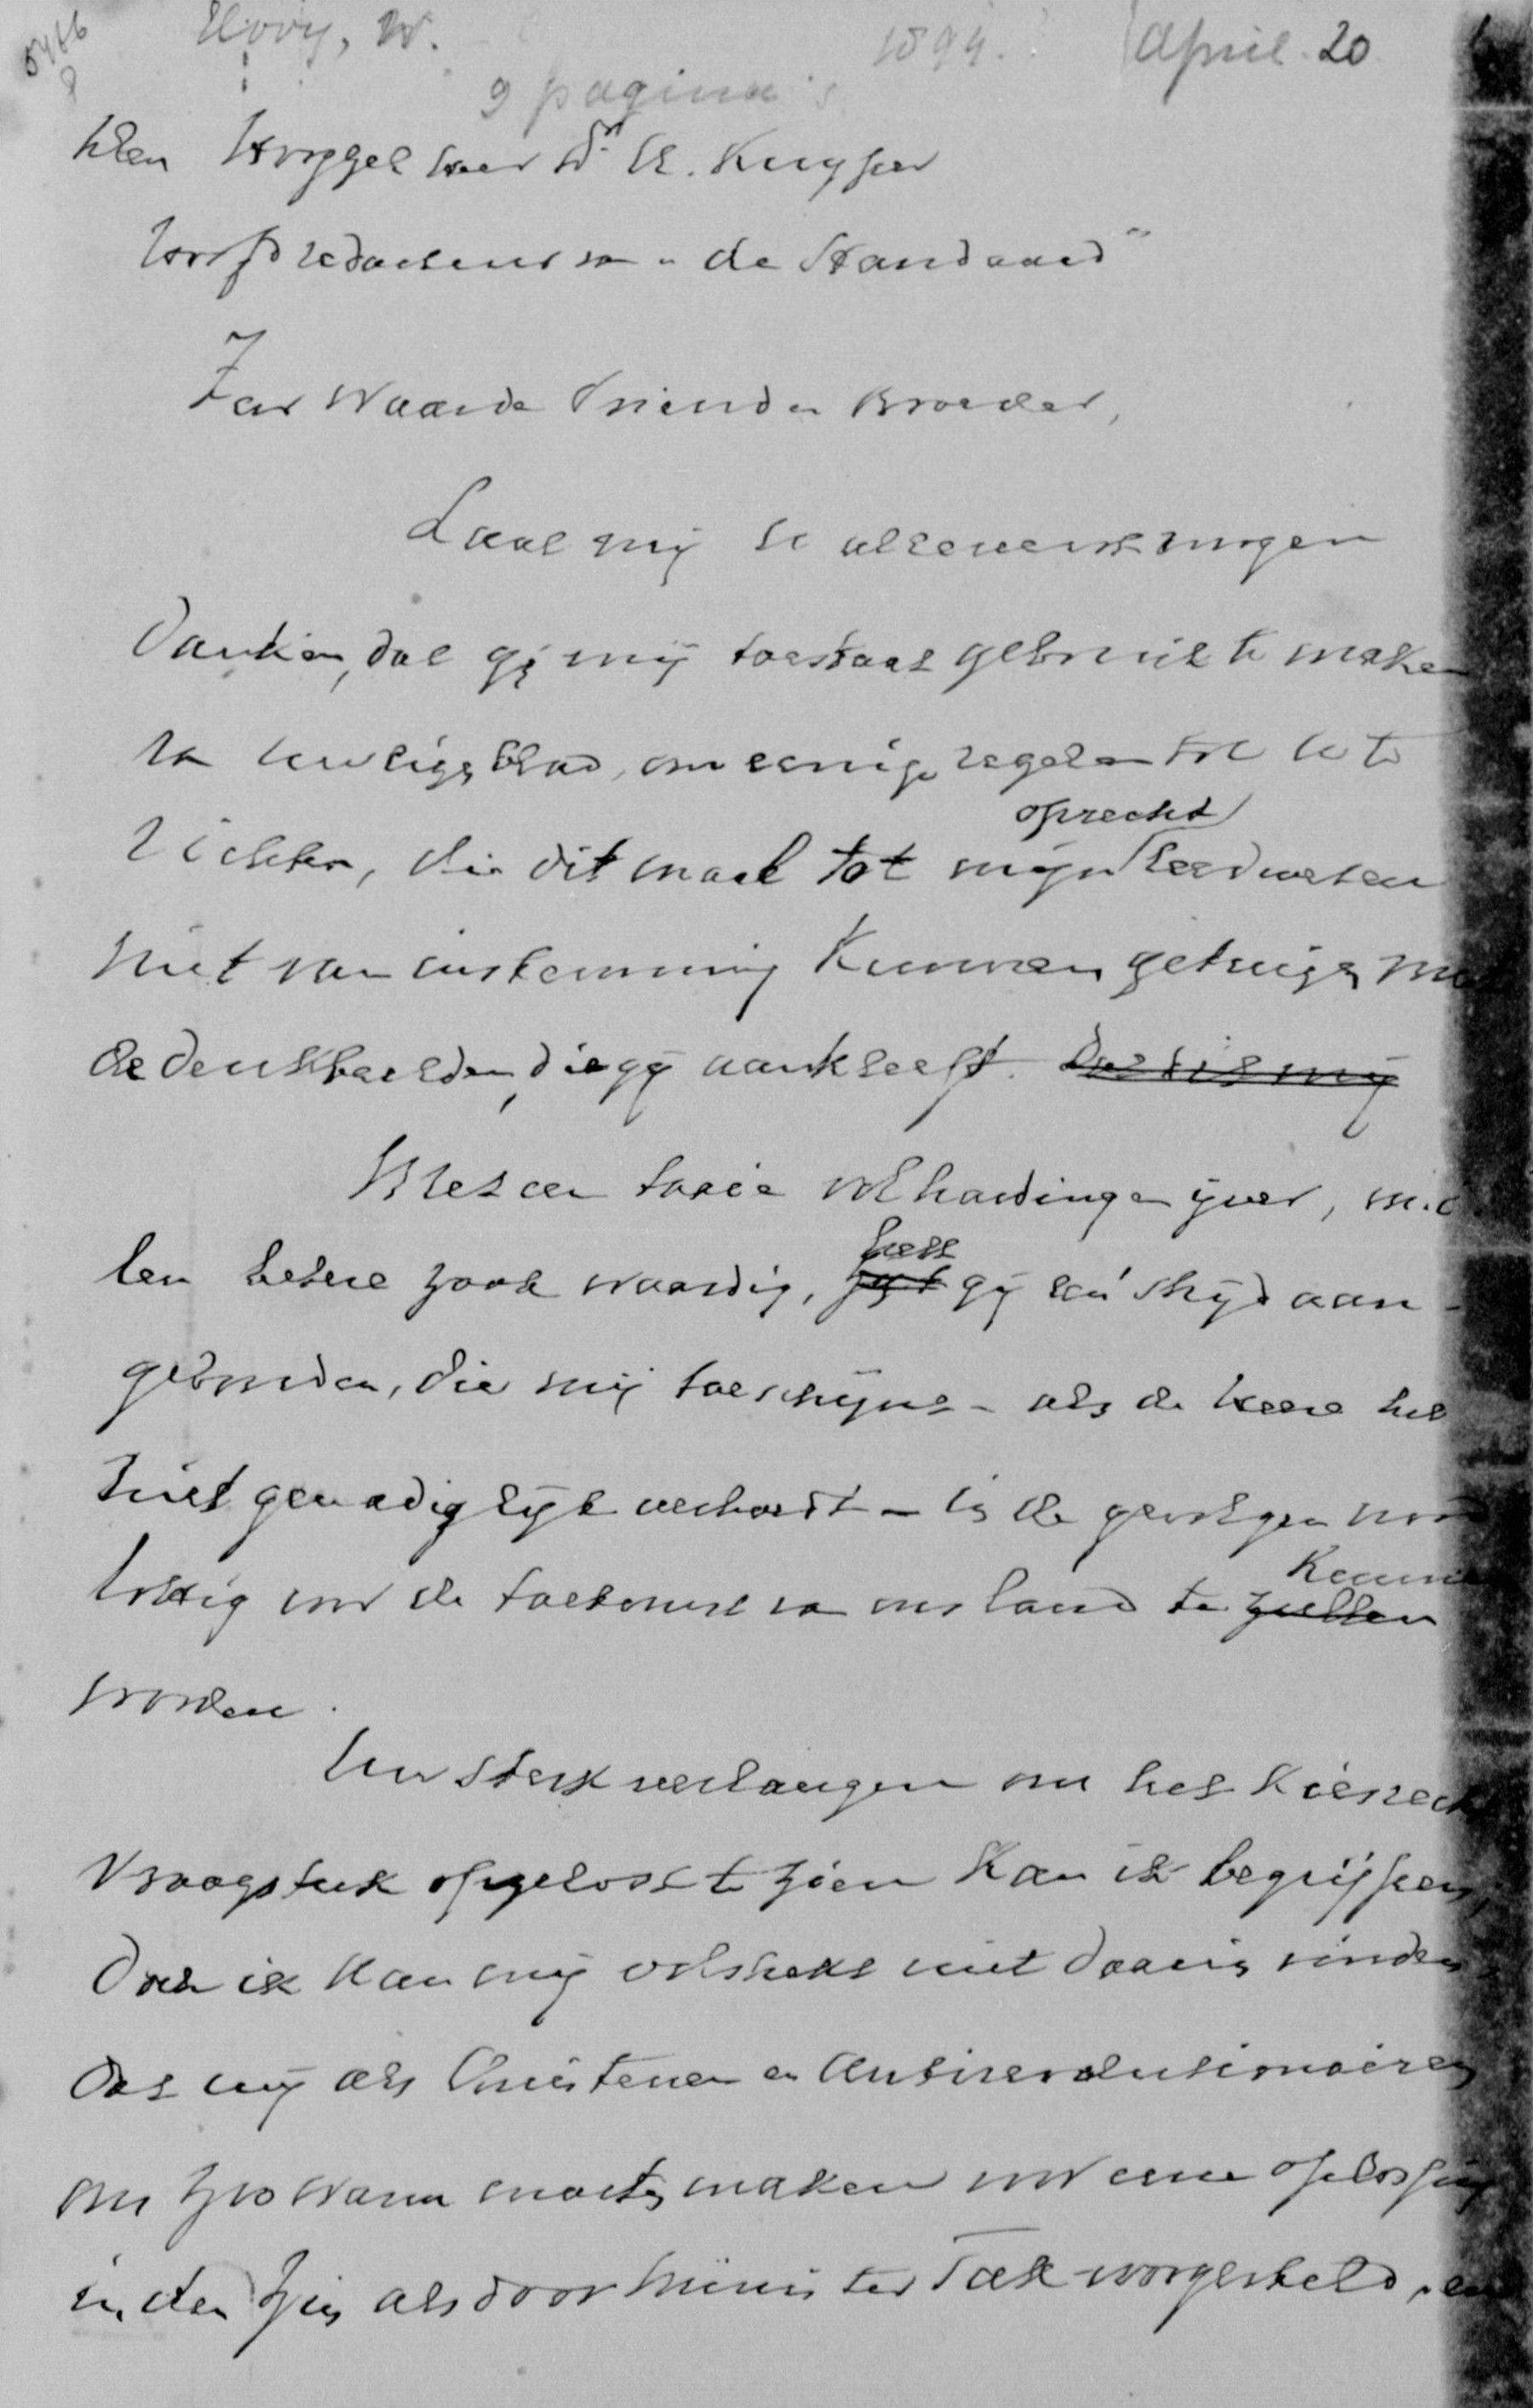 5466
8
Hovy, W.
1894.
April 20
9 pagina's
Den Hooggel heer Dr. A. Kuyper
Hoofdredacteur van "de Standaard"
Zeer Waarde Vriend en Broeder,
Laat mij U allereerst mogen
danken, dat gij mij toestaat gebruik te maken
van Uw blad, om eenige regelen tot U te
richten, die dit maal tot mijn oprecht leedwezen
niet van instemming kunnen getuigen met
de denkbeelden, die gij aankleeft. Dat is mij
Met een taaie volharding en ijver,
een betere zaak waardig, hebt gij een' strijd aan-
gebonden, die mij toeschijnt - als de Heere het
niet genadiglijk verhoedt - in de gevolgen nood
lottig voor de toekomst van ons land te zullen kunnen
worden.
Uw sterk verlangen om het Kiesrecht
vraagstuk opgelost te zien kan ik begrijpen,
Doch ik kan mij volstrekt niet daarin vinden
dat wij als Christenen en Antirevolutionairen
ons zoo warm moeten maken voor eene oplossing
in den zin als door Minister Tak voorgesteld, en